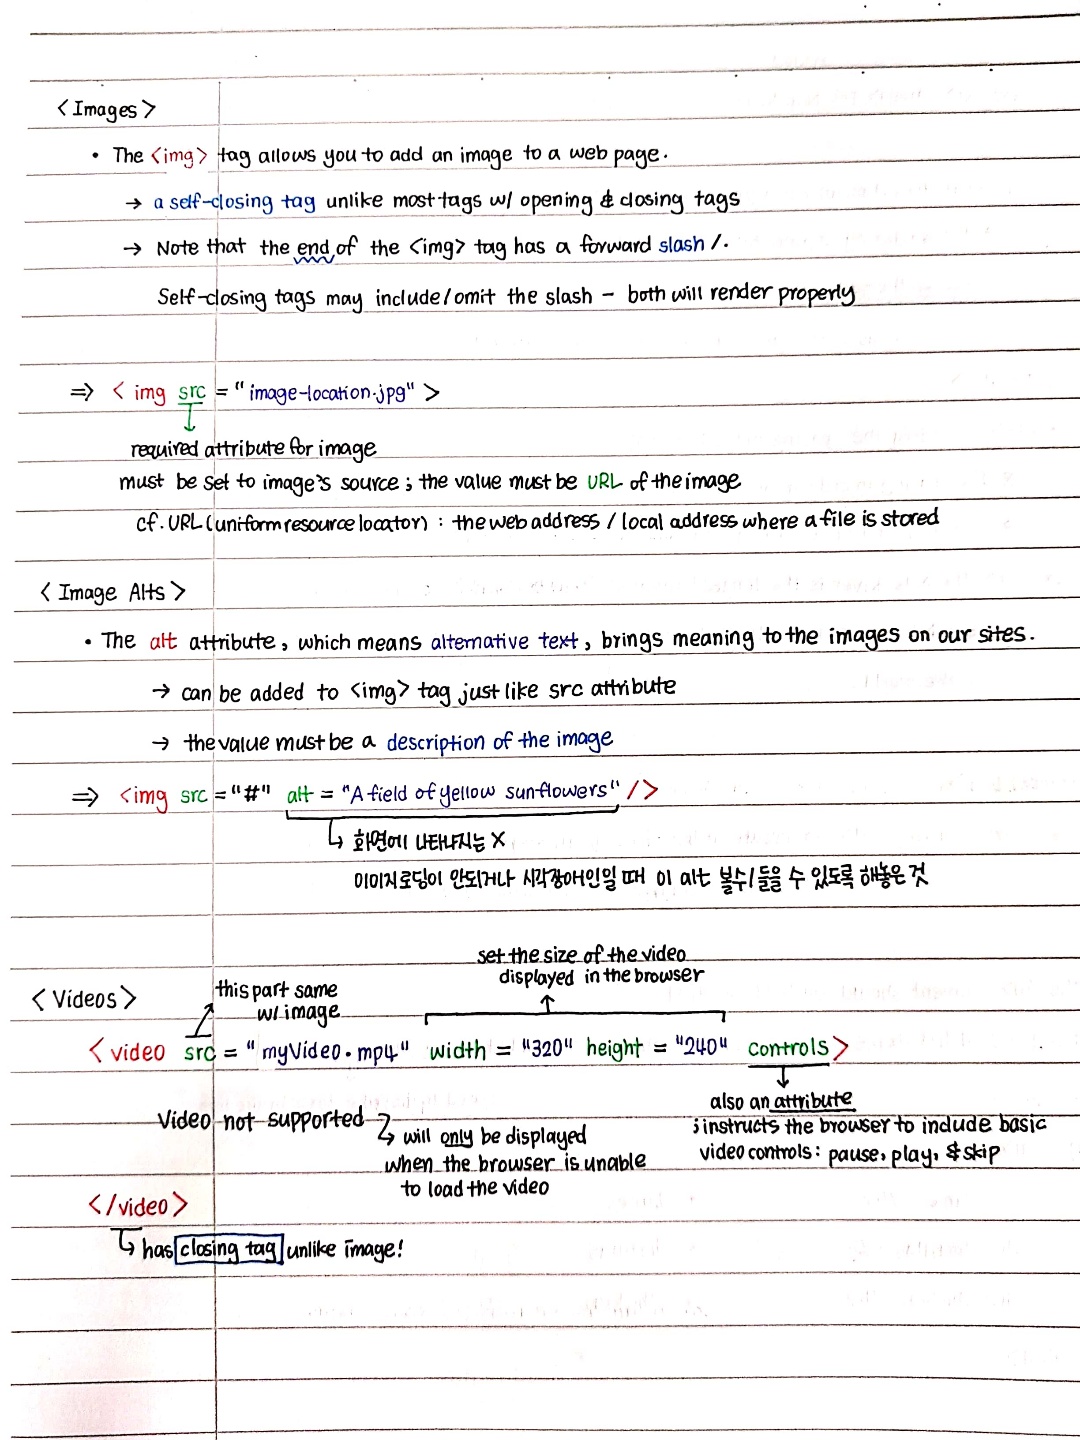 <Images>
• The <img> tag allows you to add an image to a web page.
→ a self-closing tag unlike most tags w/ opening & closing tags
→ Note that the end of the <img> tag has a forward slash /.
Self-closing tags may include/omit the slash – both will render properly
⇒ <img src = "image-location.jpg">
required attribute for image
must be set to image's source ; the value must be URL of the image
cf. URL (uniform resource locator) : the web address / local address where a file is stored
<Image Alts>
• The alt attribute, which means alternative text, brings meaning to the images on our sites.
→ can be added to <img> tag just like src attribute
→ the value must be a description of the image
⇒ <img src = "#" alt = "A field of yellow sunflowers" />
↳ 화면에 나타나지는 X
이미지로딩이 안되거나 시각장애인일 때 이 alt 볼수/들을 수 있도록 해놓은 것
set the size of the video
displayed in the browser
<Videos>
this part same
w/ image
<video src = "myVideo.mp4" width = "320" height = "240" controls>
also an attribute
; instructs the browser to include basic
video controls : pause, play, & skip
Video not supported
→ will only be displayed
when the browser is unable
to load the video
</video>
↳ has closing tag unlike image!